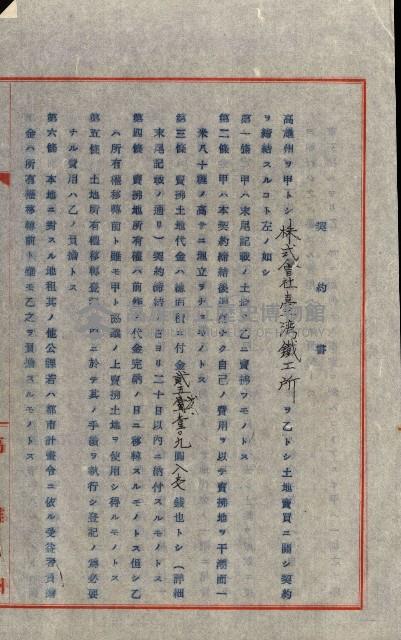 契約書
高雄州ヲ甲トシ株式會社臺灣鐵工所ヲ乙トシ土地賣買ニ關シ契約
ヲ締結スルコト左ノ如シ
第一條 甲ハ末尾記載ノ土地ヲ乙ニ賣拂フモノトス
第二條 甲ハ本契約締結後遲滯ナク自己ノ費用ヲ以テ賣拂地ヲ干潮面一
米八十糎ノ高サニ埋立ヲナスモノトス
第三條 賣拂土地代金ハ總面積ニ付金 圓 錢也トシ(詳細
末尾記載ノ通リ)契約締結ノ日ヨリ二十日以內ニ納付スルモノトス
第四條 賣拂地所有權ハ前條ノ代金完納ノ日ニ移轉スルモノトス但シ乙
ハ所有權移轉前ト雖モ甲ト協議ノ上賣拂土地ヲ使用シ得ルモノトス
第五條 土地所有權移轉登記 ニ於テ其ノ手續ヲ執行シ登記ノ爲必要
ナル費用ハ乙ノ負擔トス
第六條 本地ニ對スル地租其ノ他公課若ハ都市計畫令ニ依ル受益者負擔
金ハ所有權移轉前ト雖モ乙之ヲ負擔スルモノトス